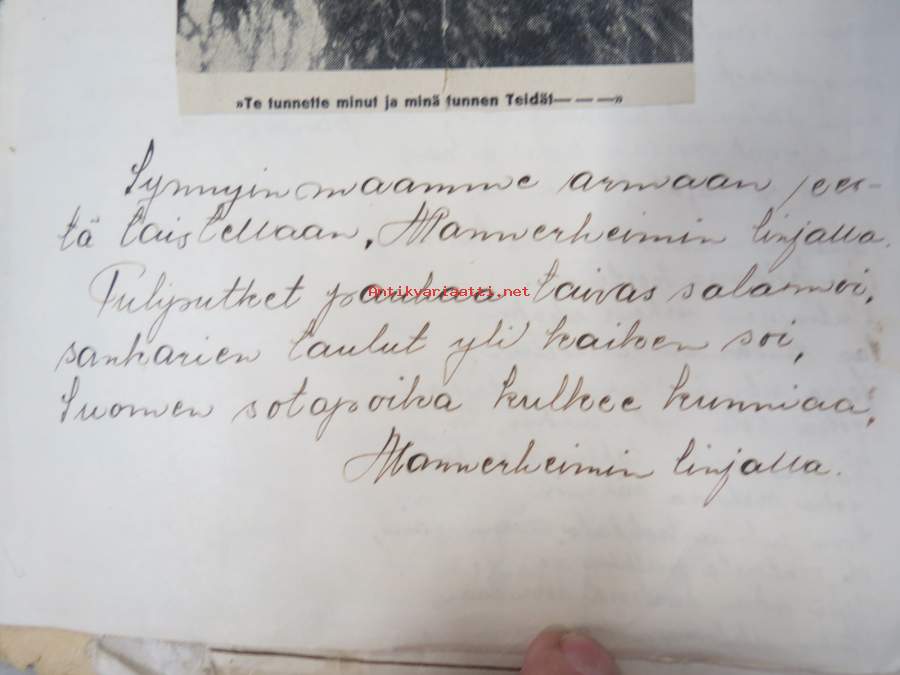 »Te tunnette minut ja minä tunnen Teidät— — —»
Synnyinmaamme armaan pees-
tä taistellaan, Mannerheimin linjalla.
Tuliputket paukaa taivas salamoi,
Antikvariaatti.net
sankarien laulut yli kaiken soi,
Suomen sotapoika kulkee kunniaa,
Mannerheimin linjalla.